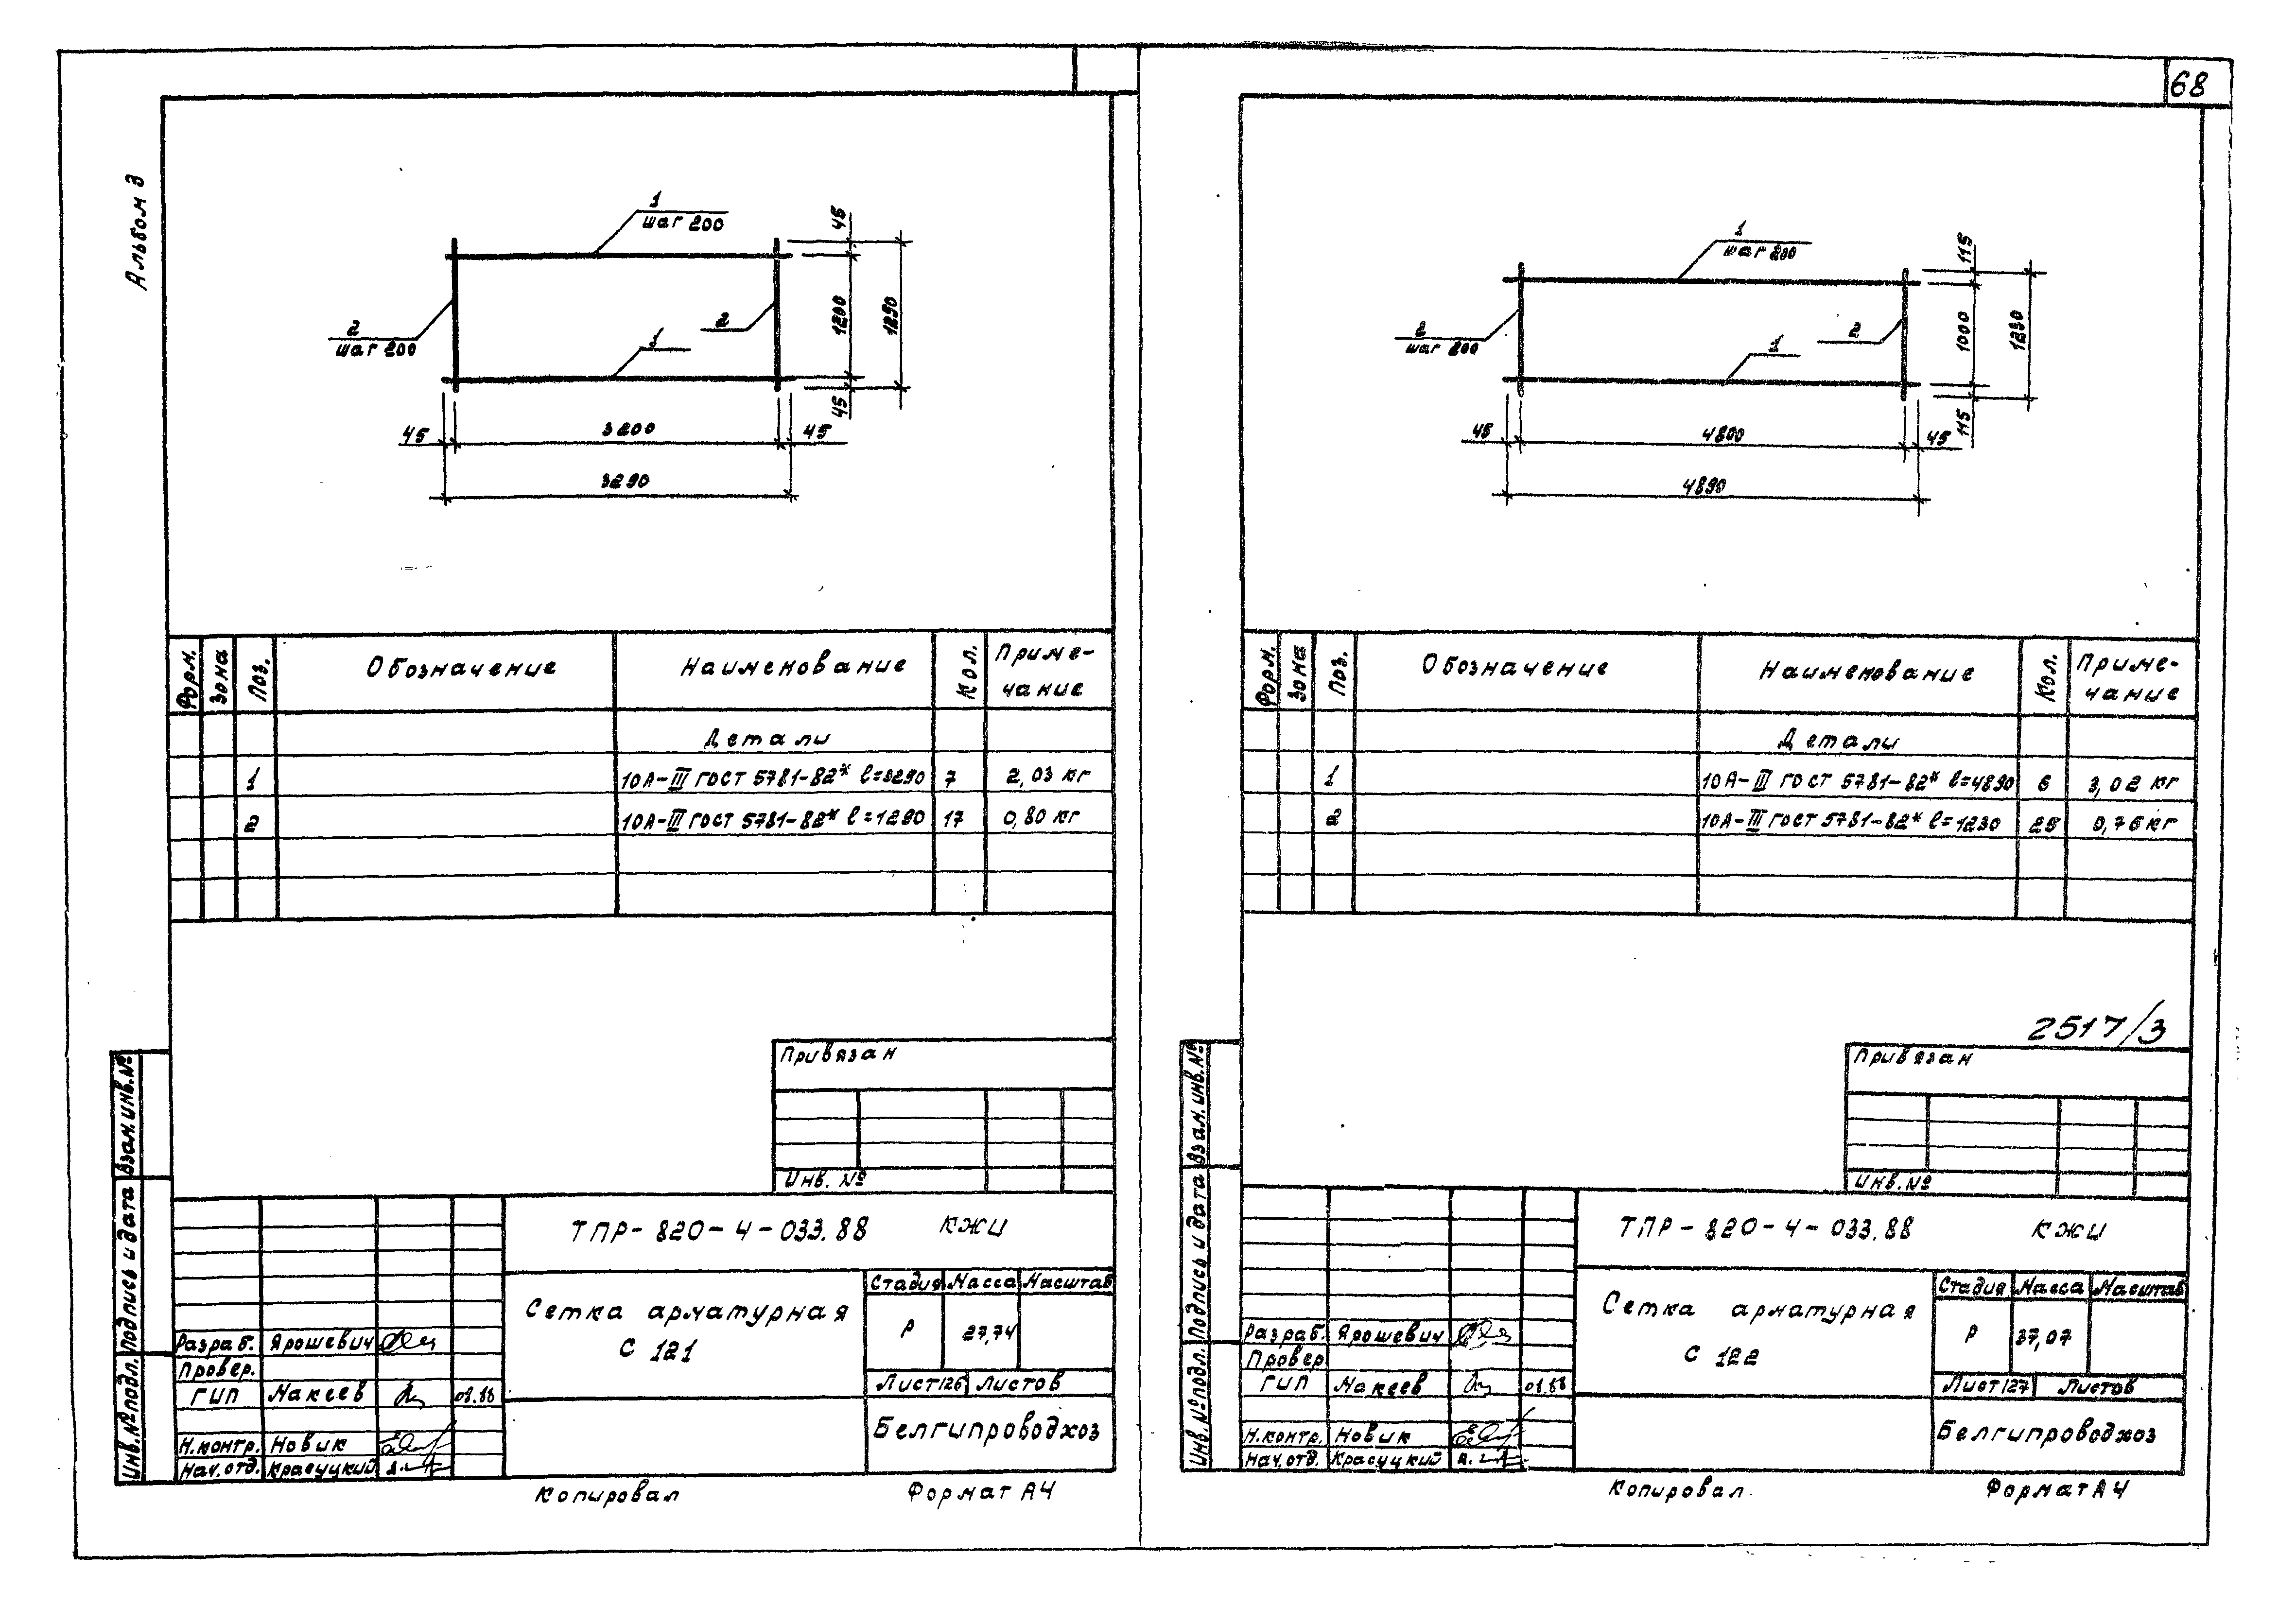 68
Альбом 3
1
шаг 200
2
шаг 200
2
1
45
1200
45
1290
45
3200
45
3290
Форм.
Зона
Поз.
Обозначение
Наименование
Кол.
Приме-
чание
Детали
1 10А-III ГОСТ 5781-82* l=3290 7 2,03 кг
2 10А-III ГОСТ 5781-82* l=1290 17 0,80 кг
Привязан
Инв. №
ТПР-820-4-033.88 КЖИ
Сетка арматурная
С 121
Стадия Масса Масштаб
Р 27,74
Лист 126 Листов
Белгипроводхоз
Разраб. Ярошевич
Провер.
ГИП Макеев 08.88
Н.контр. Новик
Нач.отд. Красуцкий
Взам.инв.№
Подпись и дата
Инв.№подл.
Копировал Формат А4
1
шаг 200
2
шаг 200
2
1
115
1000
115
1230
45
4800
45
4890
Форм.
Зона
Поз.
Обозначение
Наименование
Кол.
Приме-
чание
Детали
1 10А-III ГОСТ 5781-82* l=4890 6 3,02 кг
2 10А-III ГОСТ 5781-82* l=1230 25 0,76 кг
2517/3
Привязан
Инв.№
ТПР-820-4-033.88 КЖИ
Сетка арматурная
С 122
Стадия Масса Масштаб
Р 37,07
Лист 127 Листов
Белгипроводхоз
Разраб. Ярошевич
Провер
ГИП Макеев 08.88
Н.контр. Новик
Нач.отд. Красуцкий
Взам.инв.№
Подпись и дата
Инв.№подл.
Копировал Формат А4